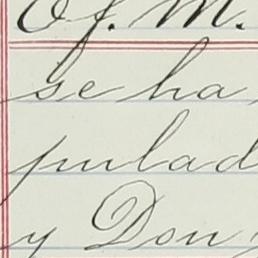 Of. M.
se ha
pulad
y Don